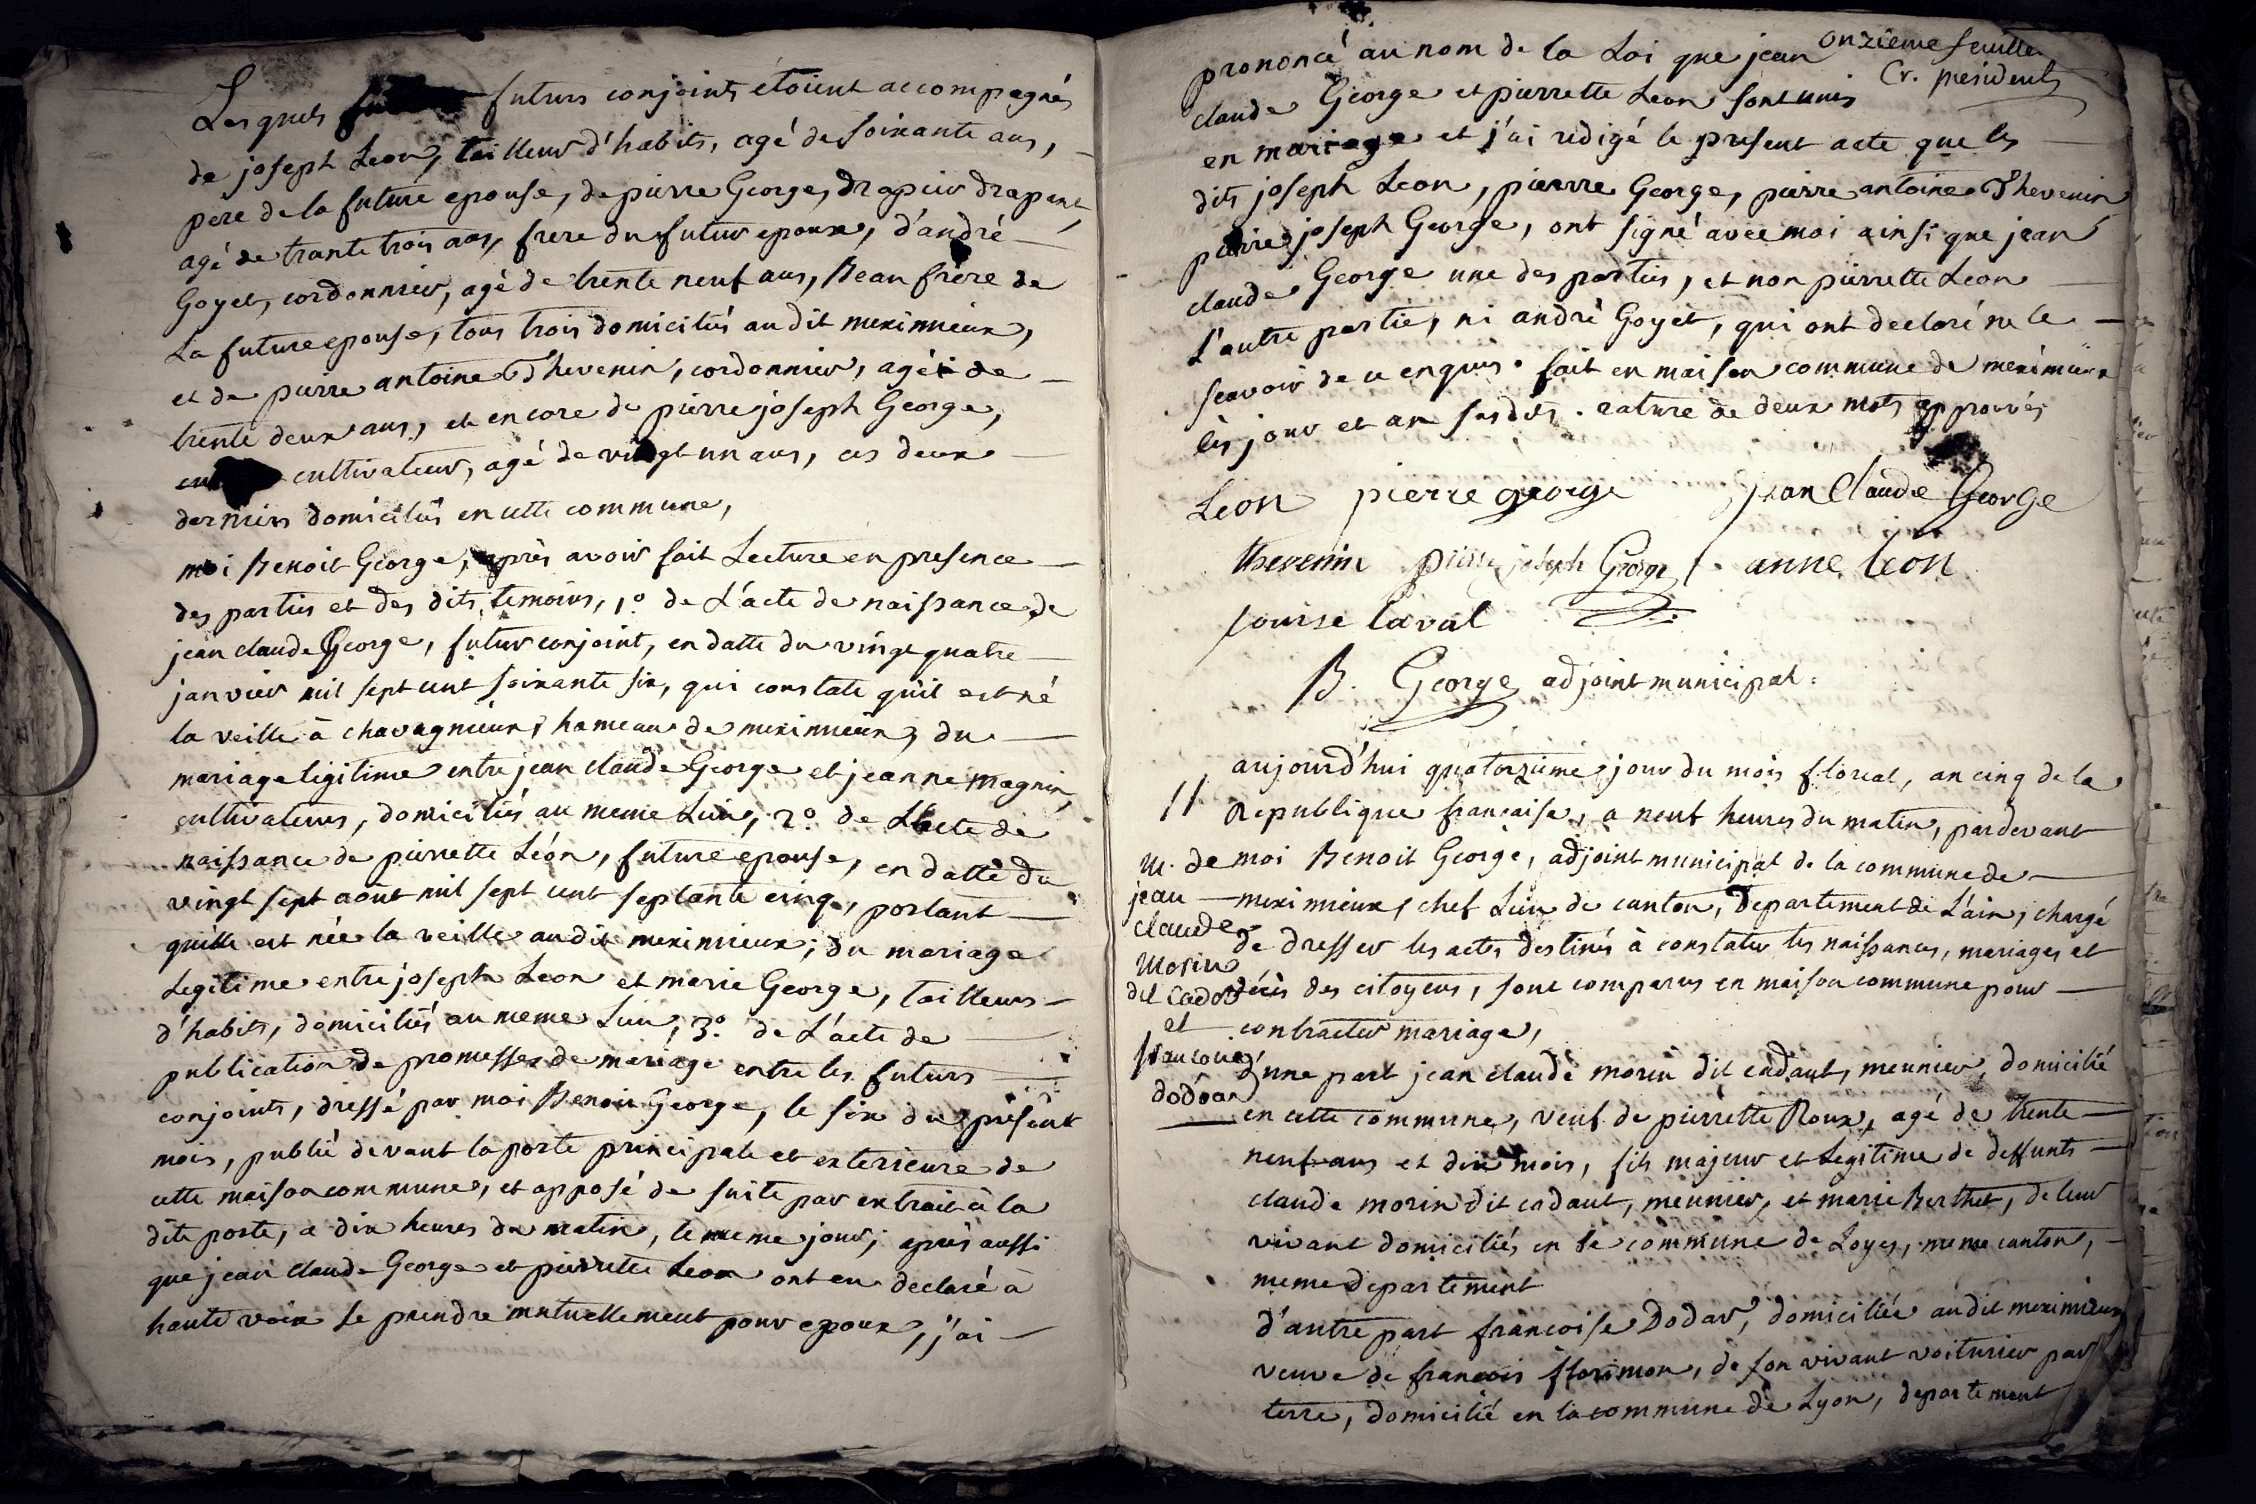 Lesquels futurs conjoints étoient accompagnés
de joseph Leon, tailleur d'habits, agé de soixante ans,
pere de la future epouse, de pierre George, drapier drapant,
agé de trante trois ans, frere du futur epoux, d'andré
Goyet, cordonnier, agé de trente neuf ans, Beau frère de
La future epouse, tous trois domiciliés au dit meximieux,
et de pierre antoine Thevenin, cordonnier, agé de
trente deux ans, et encore de pierre joseph George,
cultivateur, agé de vingt un ans, ces deux
derniers domiciliés en cette commune,
moi Benoit George, après avoir fait Lecture en presence
des parties et des dits temoins, 1º. de L'acte de naissance de
jean claude George, futur conjoint, en datte du vingt quatre
janvier mil sept cent soixante six, qui constate qu'il est né
la veille à chavagnieux, hameau de meximieux, du
mariage legitime entre jean claude George et jeanne magnin,
cultivateurs, domiciliés au meme Lieu, 2º. de L'acte de
naissance de pierrette Léon, future epouse, en datte du
vingt sept août mil sept cent septante cinq, portant
qu'elle est née la veille audit meximieux, du mariage
Legitime entre joseph Leon et marie George, tailleurs
d'habits, domiciliés au meme Lieu, 3º. de L'acte de
publication de promesses de mariage entre les futurs
conjoints, dressé par moi Benoit George, le six du présent
mois, publié devant la porte principale et exterieure de
cette maison commune, et apposé de suite par extrait à la
dite porte, a dix heures du matin, le meme jour; après aussi
que jean claude George et pierrette Leon ont eu declaré à
haute voix se prendre mutuellement pour epoux, j'ai
onzieme feuille
Cr. president
prononcé au nom de la Loi que jean
claude George et pierrette Leon sont unis
en mariage et j'ai redigé le present acte que les
dits joseph Leon, pierre George, pierre antoine Thevenin
pierre joseph George, ont signé avec moi ainsi que jean
claude George une des parties, et non pierrette Leon
L'autre partie, ni andré Goyet, qui ont declaré ne le
scavoir de ce enquis. fait en maison commune de meximieux
les jour et an susdits. rature de deux mots approuvés
Leon pierre george jean Claude George
thevenin pierre joseph George anne leon
louise laval
B. George adjoint municipal.
11
m. de
jean
claude
Morin
dit Cadot
et
francoise
dodar
aujourd'hui quatorzieme jour du mois floreal, an cinq de la
Republique francaise, a neuf heures du matin, pardevant
moi Benoit George, adjoint municipal de la commune de
meximieux, chef Lieu de canton, Departement de L'ain, chargé
de dresser les actes destinés à constater les naissances, mariages et
décès des citoyens, sont comparus en maison commune pour
contracter mariage,
d'une part jean claude morin dit cadaut, meunier, domicilié
en cette commune, veuf de pierrette Roux, agé de trente
neuf ans et dix mois, fils majeur et Legitime de deffunts
claude morin dit cadaut, meunier, et marie Berthet, de leur
vivant domiciliés en la commune de Loyes, meme canton,
meme departement
d'autre part francoise Dodar, domiciliée audit meximieux
veuve de francois florimon, de son vivant voiturier par
terre, domicilié en la commune de Lyon, departement